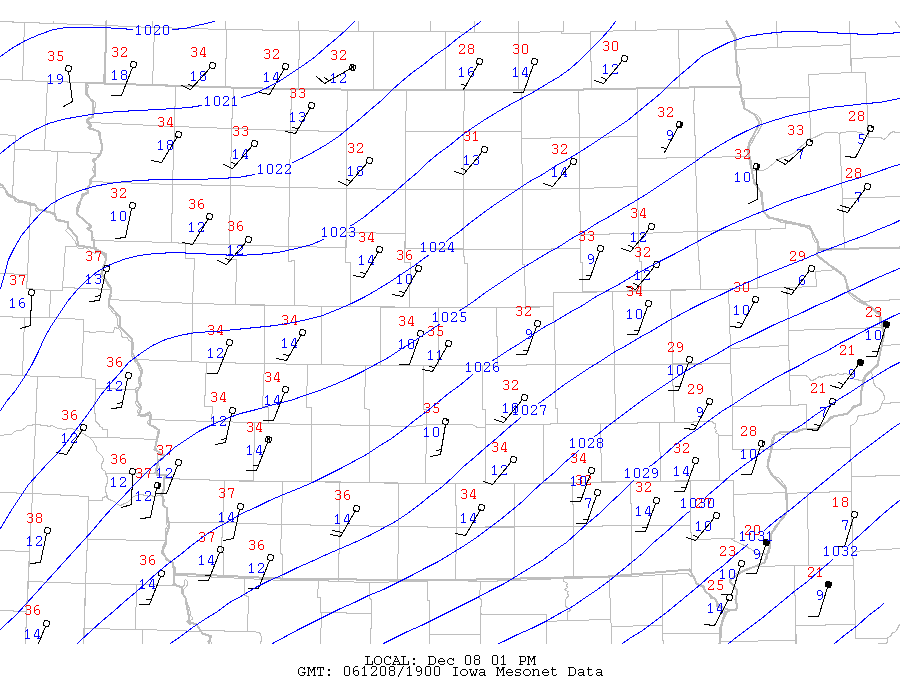 1020
35 32 34 32 32 28 30 30
19 18 18 14 12 16 14 12
1021
33 32
13 9
34 33 31 32 33 28
18 14 13 14 7 5
32 32
18 10
1022
28
7
32 36 36 34
10 12 12 12
1023 1024
34 36 33 32 29
14 10 9 12 6
37 37
16 13
34 30
10 10
1025
34 34 34 35 32 23
12 14 10 11 9 10
1026
36 29 21
12 10 9
34 34 32 29 21
12 14 10 9 7
1027
36 34 35 28
12 14 10 10
1028
36 37 37 34 34 32
12 12 12 12 10 14
1029
37 36 34 32 18
14 14 14 7 14 10 7
1030
38 37 36 20
12 14 12 9
1031
1032
36 23 21
14 10 9
36 25
14 14
LOCAL: Dec 08 01 PM
GMT: 061208/1900 Iowa Mesonet Data